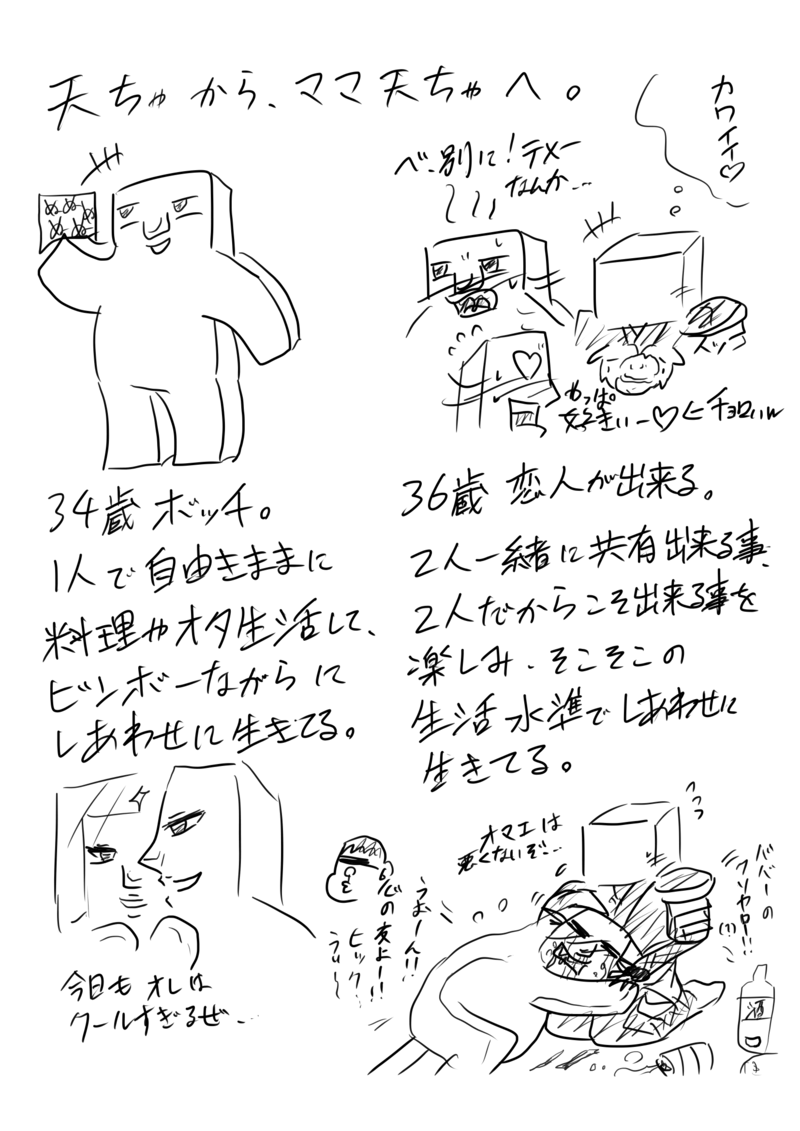 天ちゃから、ママ天ちゃへ。
カワイイ♡
べ、別に!テメー
なんか…
ぬぬ
ぬぬ
やっぱ
好きぃー♡ヒチョロいw
34歳 ボッチ。
1人で自由きままに
料理やオタ生活して、
ビンボーながらに
しあわせに生きてる。
36歳 恋人が出来る。
2人一緒に共有出来る事、
2人だからこそ出来る事を
楽しみ、そこそこの
生活水準でしあわせに
生きてる。
今日も オレは
クールすぎるぜ、…
うおーん!!
心の友よー!!
ヒック
うぃ〜
オマエは
悪くないぞ…
ババーの
クソヤロー!!
(?)
酒